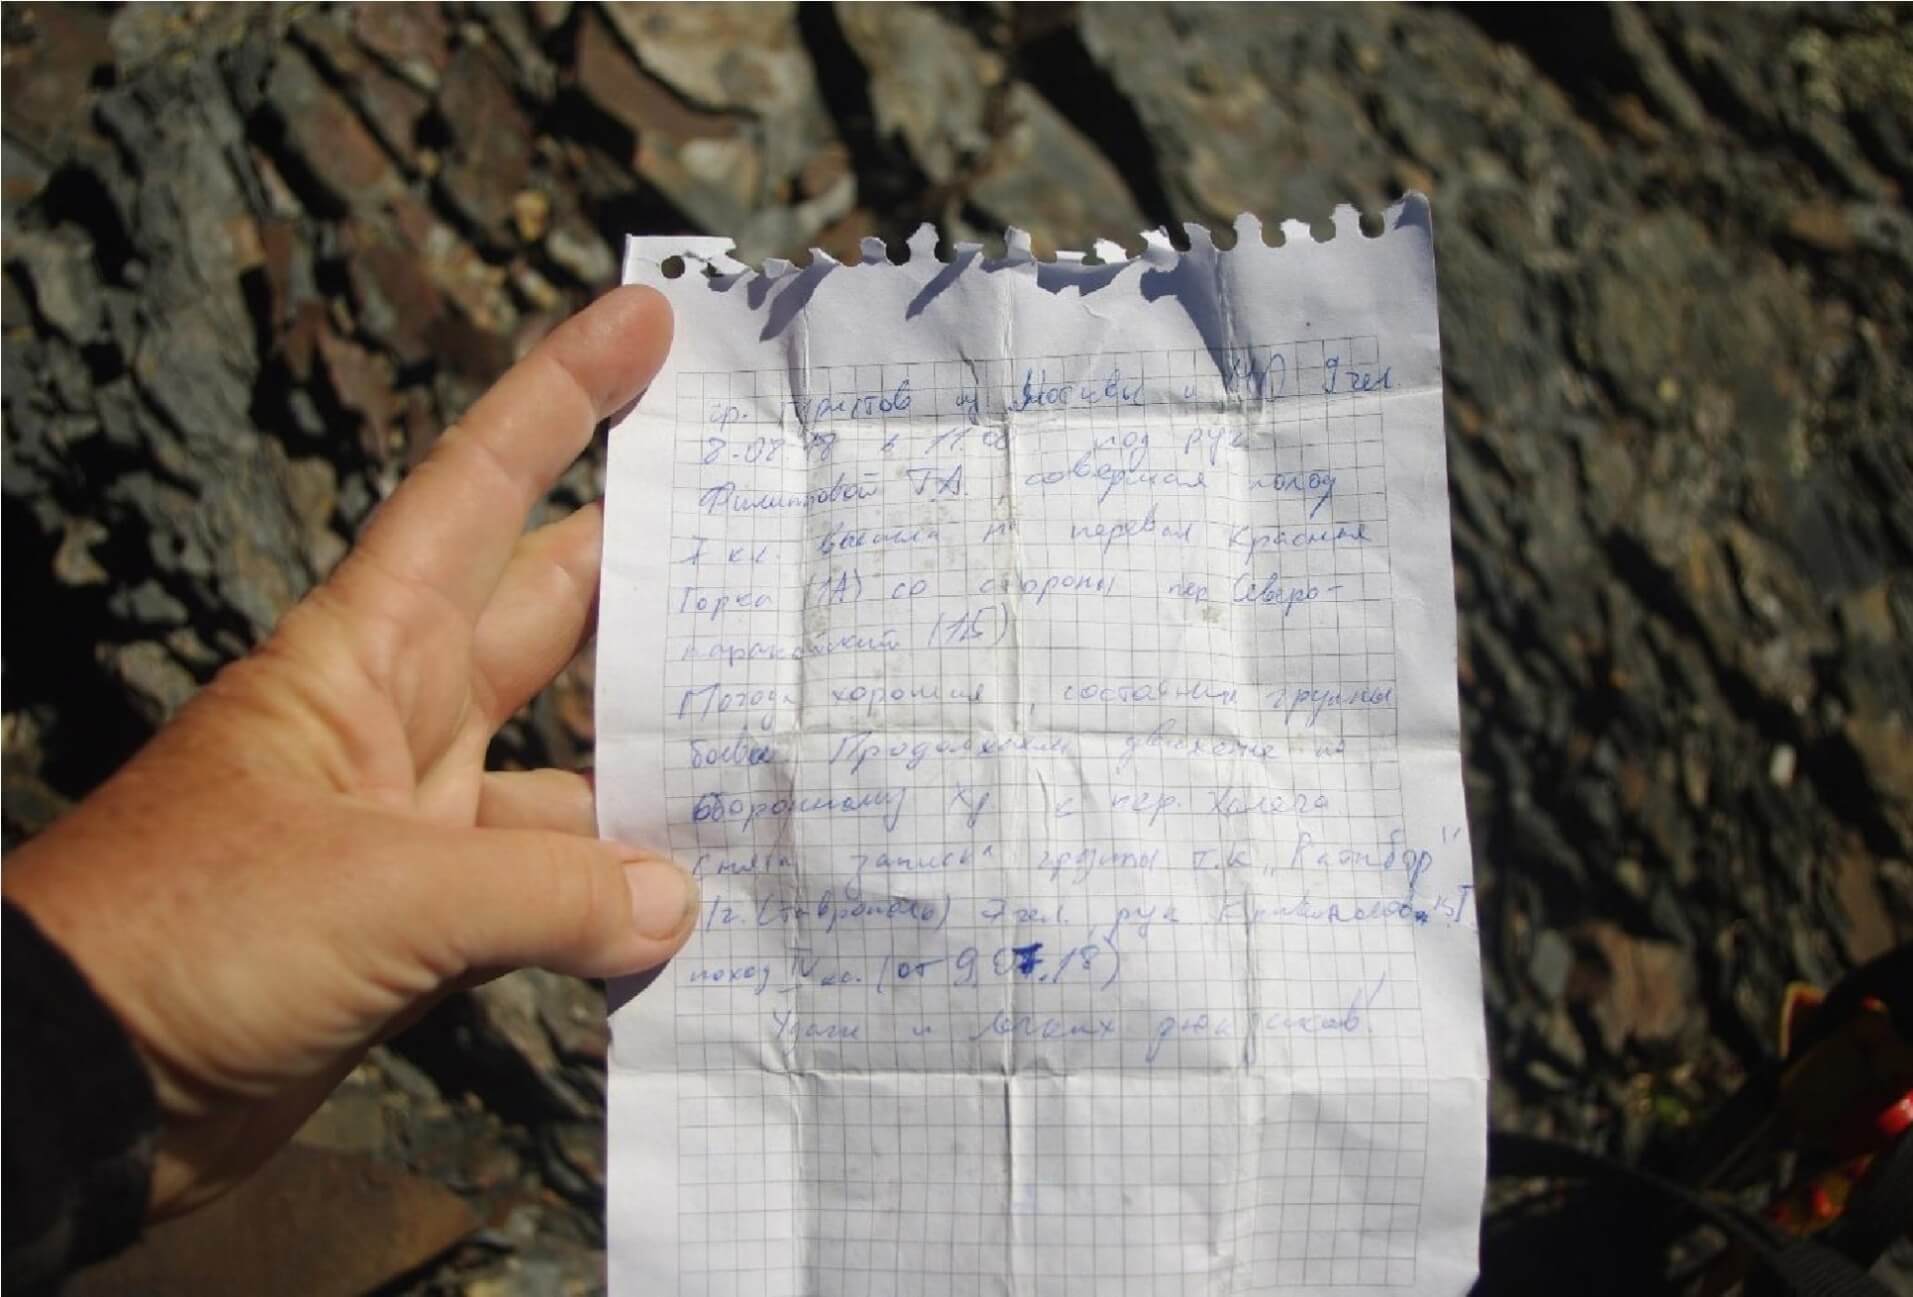 гр. туристов из Москвы и МО 9 чел.
8.08.18 в 11.00 под рук
Филипповой Т.А., совершая поход
кс. взошла на перевал Красная
Горка (1А) со стороны пер Северо-
каракайский (1Б)
Погода хорошая, состояние группы
боевое. Продолжаем движение по
хр. к пер. Халега.
Снята записка группы т.к. „Ратибор"
г. (Ставрополь) 7 чел. рук
поход IV кс. (от 9.07.18)
Удачи и легких рюкзаков!